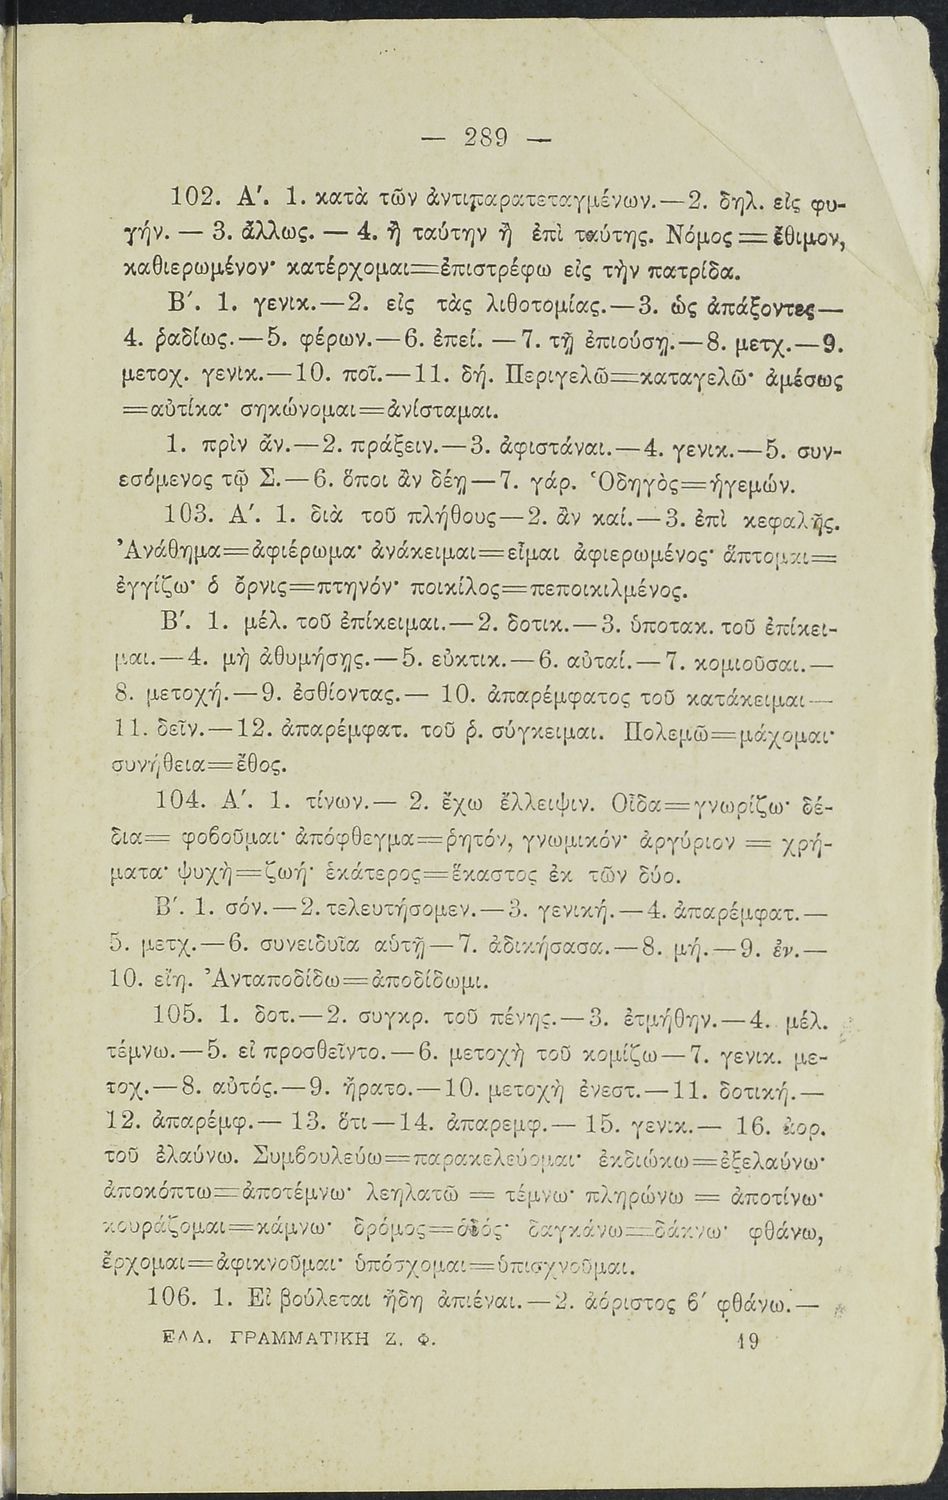 — 289 —
102. Α΄. 1. κατὰ τῶν ἀντιπαρατεταγμένων.—2. δηλ. εἰς φυ-
γήν. — 3. ἄλλως. — 4. ἢ ταύτην ἢ ἐπὶ ταύτης. Νόμος = ἔθιμον,
καθιερωμένον· κατέρχομαι=ἐπιστρέφω εἰς τὴν πατρίδα.
Β΄. 1. γενικ.—2. εἰς τὰς λιθοτομίας.—3. ὡς ἀπάξοντες—
4. ῥαδίως.—5. φέρων.—6. ἐπεί. —7. τῇ ἐπιούσῃ.—8. μετχ.—9.
μετοχ. γενικ.—10. ποῖ.—11. δή. Περιγελῶ=καταγελῶ· ἀμέσως
=αὐτίκα· σηκώνομαι=ἀνίσταμαι.
1. πρὶν ἄν.—2. πράξειν.—3. ἀφιστάναι.—4. γενικ.—5. συν-
εσόμενος τῷ Σ.—6. ὅποι ἂν δέῃ—7. γάρ. Ὁδηγὸς=ἡγεμών.
103. Α΄. 1. διὰ τοῦ πλήθους—2. ἂν καί.—3. ἐπὶ κεφαλῆς.
Ἀνάθημα=ἀφιέρωμα· ἀνάκειμαι=εἶμαι ἀφιερωμένος· ἅπτομαι=
ἐγγίζω· ὁ ὄρνις=πτηνόν· ποικίλος=πεποικιλμένος.
Β΄. 1. μέλ. τοῦ ἐπίκειμαι.—2. δοτικ.—3. ὑποτακ. τοῦ ἐπίκει-
μαι.—4. μὴ ἀθυμήσῃς.—5. εὐκτικ.—6. αὐταί.—7. κομιοῦσαι.—
8. μετοχή.—9. ἐσθίοντας.— 10. ἀπαρέμφατος τοῦ κατάκειμαι—
11. δεῖν.—12. ἀπαρέμφατ. τοῦ ῥ. σύγκειμαι. Πολεμῶ=μάχομαι·
συνήθεια=ἔθος.
104. Α΄. 1. τίνων.— 2. ἔχω ἔλλειψιν. Οἶδα=γνωρίζω· δέ-
δια= φοβοῦμαι· ἀπόφθεγμα=ῥητόν, γνωμικόν· ἀργύριον = χρή-
ματα· ψυχὴ=ζωή· ἑκάτερος=ἕκαστος ἐκ τῶν δύο.
Β΄. 1. σόν.—2. τελευτήσομεν.—3. γενική.—4. ἀπαρέμφατ.—
5. μετχ.—6. συνειδυῖα αὑτῇ—7. ἀδικήσασα.—8. μή.—9. ἐν.—
10. εἴη. Ἀνταποδίδω=ἀποδίδωμι.
105. 1. δοτ.—2. συγκρ. τοῦ πένης.—3. ἐτμήθην.—4. μέλ.
τέμνω.—5. εἰ προσθεῖντο.—6. μετοχὴ τοῦ κομίζω—7. γενικ. με-
τοχ.—8. αὐτός.—9. ἤρατο.—10. μετοχὴ ἐνεστ.—11. δοτική.—
12. ἀπαρέμφ.— 13. ὅτι—14. ἀπαρεμφ.— 15. γενικ.— 16. ἀορ.
τοῦ ἐλαύνω. Συμβουλεύω=παρακελεύομαι· ἐκδιώκω=ἐξελαύνω·
ἀποκόπτω=ἀποτέμνω· λεηλατῶ = τέμνω· πληρώνω = ἀποτίνω·
κουράζομαι=κάμνω· δρόμος=ὁδός· δαγκάνω=δάκνω· φθάνω,
ἔρχομαι=ἀφικνοῦμαι· ὑπόσχομαι=ὑπισχνοῦμαι.
106. 1. Εἰ βούλεται ἤδη ἀπιέναι.—2. ἀόριστος β΄ φθάνω.—
ΕΛΛ. ΓΡΑΜΜΑΤΙΚΗ Ζ. Φ. 19